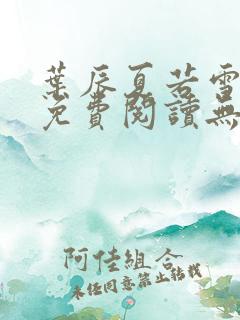 葉辰夏若雪
免費閱讀無
阿佳組合
未经同意禁止转载